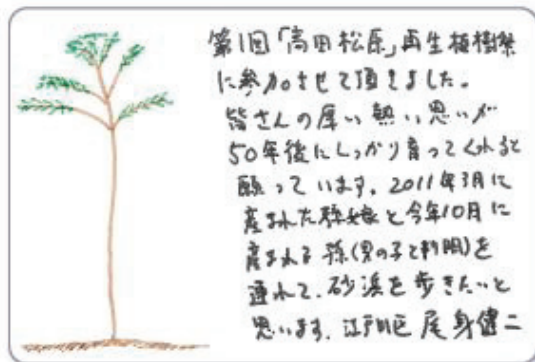 第1回「高田松原」再生植樹祭
に参加させて頂きました。
皆さんの厚い熱い思いが
50年後にしっかり育ってくれると
願っています。2011年3月に
産まれた孫娘と今年10月に
産まれる孫(男の子と判明)を
連れて、砂浜を歩きたいと
思います。江戸川区 尾身健二